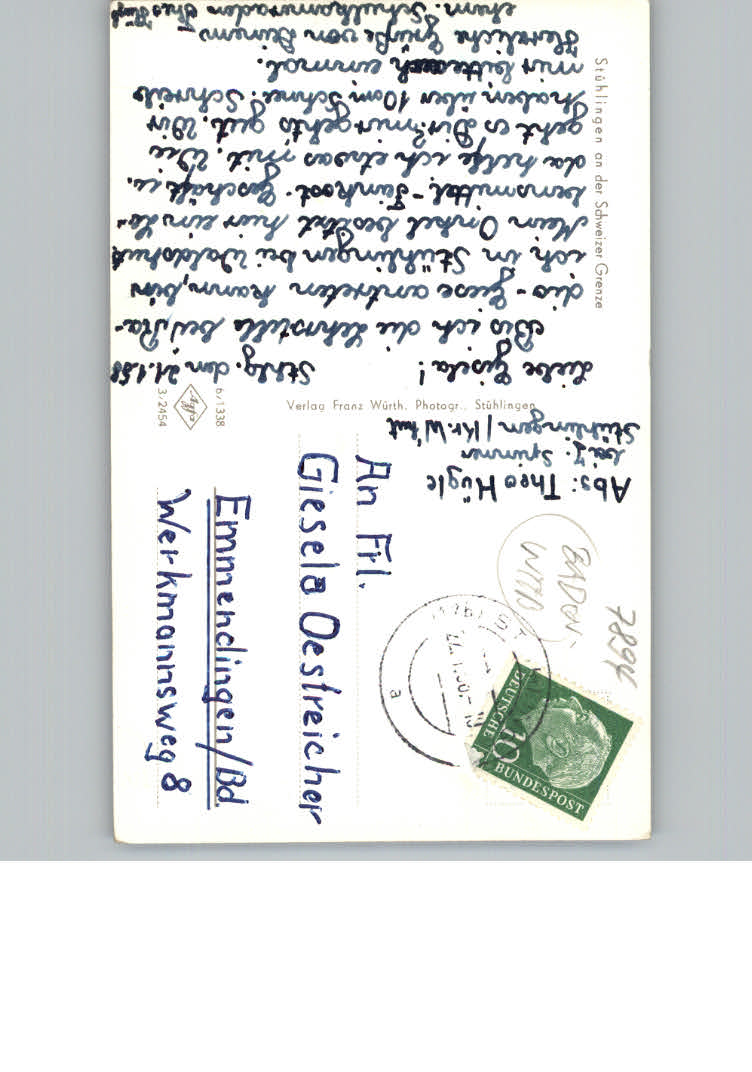 Stühlingen an der Schweizer Grenze
Liebe Gisela! Sthlg. den 21.1.58
Bis ich die Lehrstelle bei Ra-
dio-Giese antreten kann, bin
ich in Stühlingen bei Waldshut
Mein Onkel besitzt hier ein Le-
bensmittel-Feinkost-Geschäft u.
da helfe ich etwas mit. Wie
geht es Dir? mir gehts gut. Wir
haben über 10cm Schnee. Schreib
mir bitte auch einmal.
Herzliche Grüße von Deinem
ehem. Schulkameraden Theo
Verlag Franz Würth, Photogr., Stühlingen
Agfa
6/1338
3/2454
Abs: Theo Hügle
bei J. Spinner
Stühlingen / Kr. W'hut
An Frl.
Giesela Oestreicher
Emmendingen/Bd
Werkmannsweg 8
7894
BADEN-
WTTB
DEUTSCHE
BUNDESPOST
10
a